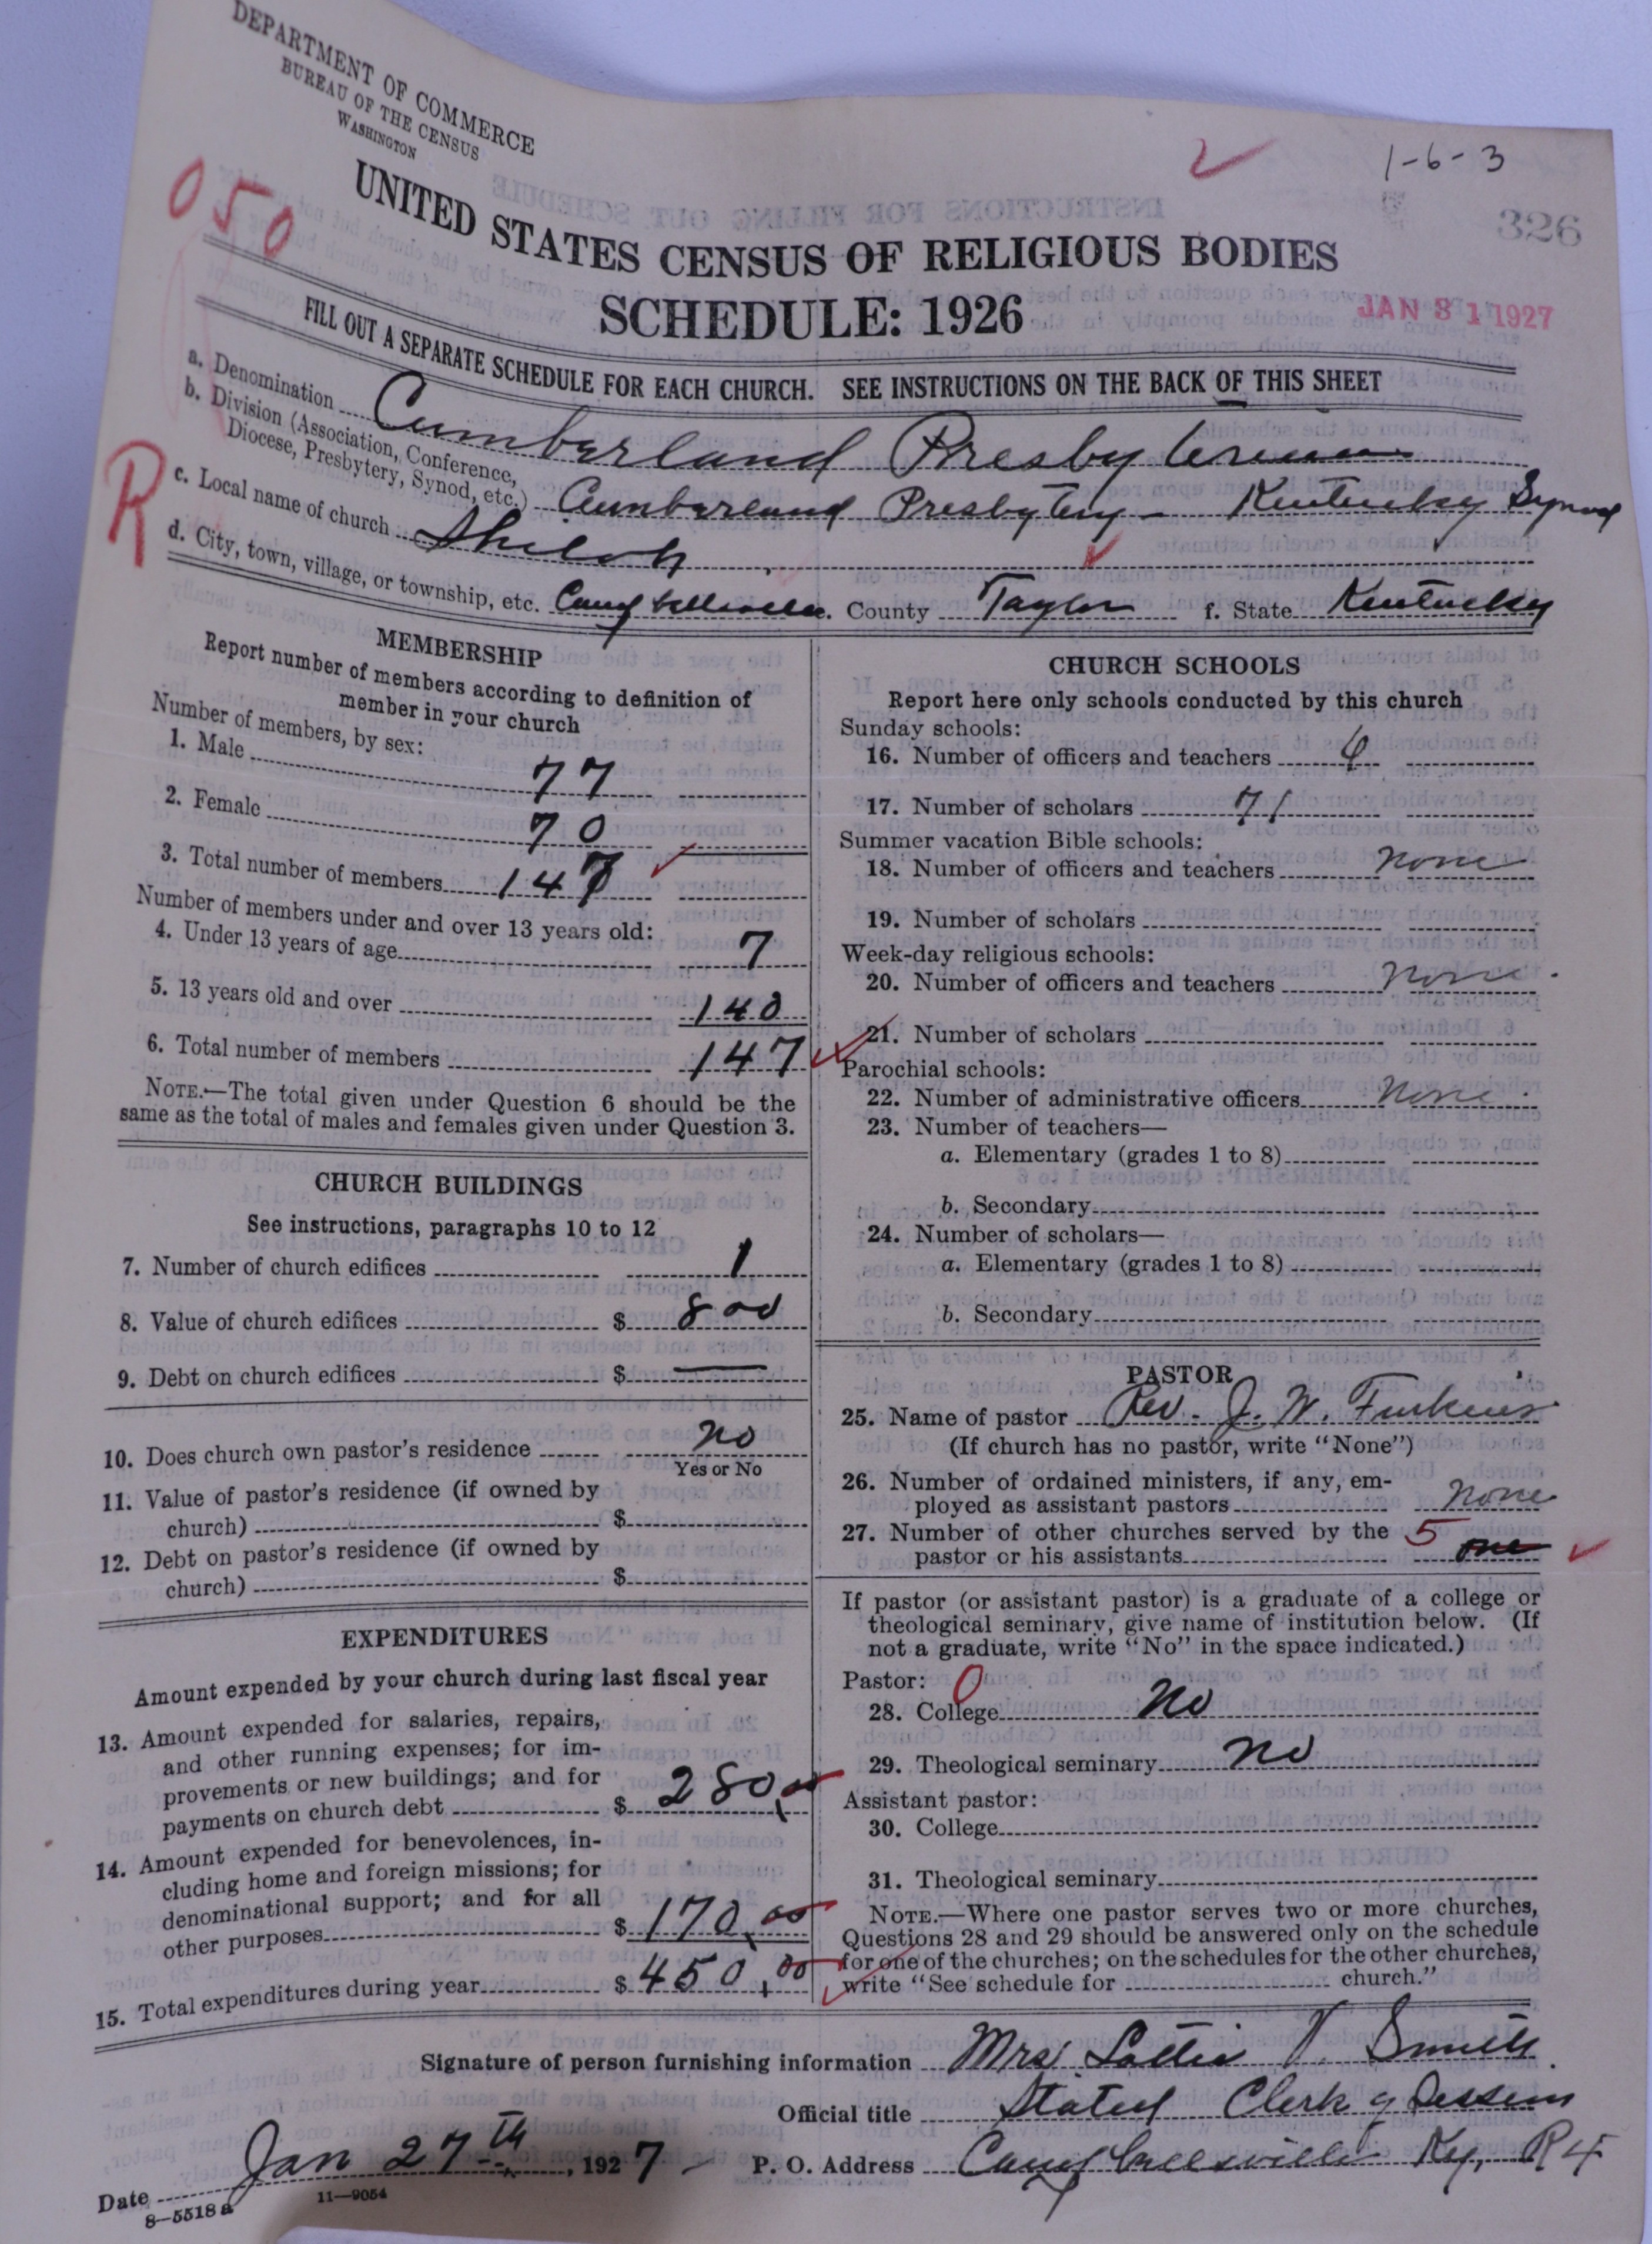 DEPARTMENT OF COMMERCE
BUREAU OF THE CENSUS
WASHINGTON
1-6-3
326
050
UNITED STATES CENSUS OF RELIGIOUS BODIES
SCHEDULE: 1926
JAN 31 1927
FILL OUT A SEPARATE SCHEDULE FOR EACH CHURCH. SEE INSTRUCTIONS ON THE BACK OF THIS SHEET
a. Denomination Cumberland Presbyterian
b. Division (Association, Conference,
Diocese, Presbytery, Synod, etc.) Cumberland Presbytery - Kentucky Synod
R
c. Local name of church Shiloh
d. City, town, village, or township, etc. Campbellsville. County Taylor f. State Kentucky
MEMBERSHIP
Report number of members according to definition of
member in your church
Number of members, by sex:
1. Male 77
2. Female 70
3. Total number of members 147
Number of members under and over 13 years old:
4. Under 13 years of age 7
5. 13 years old and over 140
6. Total number of members 147
NOTE.—The total given under Question 6 should be the
same as the total of males and females given under Question 3.
CHURCH BUILDINGS
See instructions, paragraphs 10 to 12
7. Number of church edifices 1
8. Value of church edifices $ 800
9. Debt on church edifices $ —
10. Does church own pastor's residence no
Yes or No
11. Value of pastor's residence (if owned by
church) $
12. Debt on pastor's residence (if owned by
church) $
EXPENDITURES
Amount expended by your church during last fiscal year
13. Amount expended for salaries, repairs,
and other running expenses; for im-
provements or new buildings; and for
payments on church debt $ 280.00
14. Amount expended for benevolences, in-
cluding home and foreign missions; for
denominational support; and for all
other purposes $ 170.00
15. Total expenditures during year $ 450.00
CHURCH SCHOOLS
Report here only schools conducted by this church
Sunday schools:
16. Number of officers and teachers
17. Number of scholars 71
Summer vacation Bible schools:
18. Number of officers and teachers none
19. Number of scholars
Week-day religious schools:
20. Number of officers and teachers none.
21. Number of scholars
Parochial schools:
22. Number of administrative officers none.
23. Number of teachers—
a. Elementary (grades 1 to 8)
b. Secondary
24. Number of scholars—
a. Elementary (grades 1 to 8)
b. Secondary
PASTOR
25. Name of pastor Rev. J. W.
(If church has no pastor, write "None")
26. Number of ordained ministers, if any, em-
ployed as assistant pastors none
27. Number of other churches served by the 5
pastor or his assistants one
If pastor (or assistant pastor) is a graduate of a college or
theological seminary, give name of institution below. (If
not a graduate, write "No" in the space indicated.)
Pastor: 0
28. College no
29. Theological seminary no
Assistant pastor:
30. College
31. Theological seminary
NOTE.—Where one pastor serves two or more churches,
Questions 28 and 29 should be answered only on the schedule
for one of the churches; on the schedules for the other churches,
write "See schedule for church."
Signature of person furnishing information Mrs Lottie V. Smith.
Official title Stated Clerk of Session
Date Jan 27th, 1927 P. O. Address Campbellsville Ky, R4
8—5518 a
11—9054